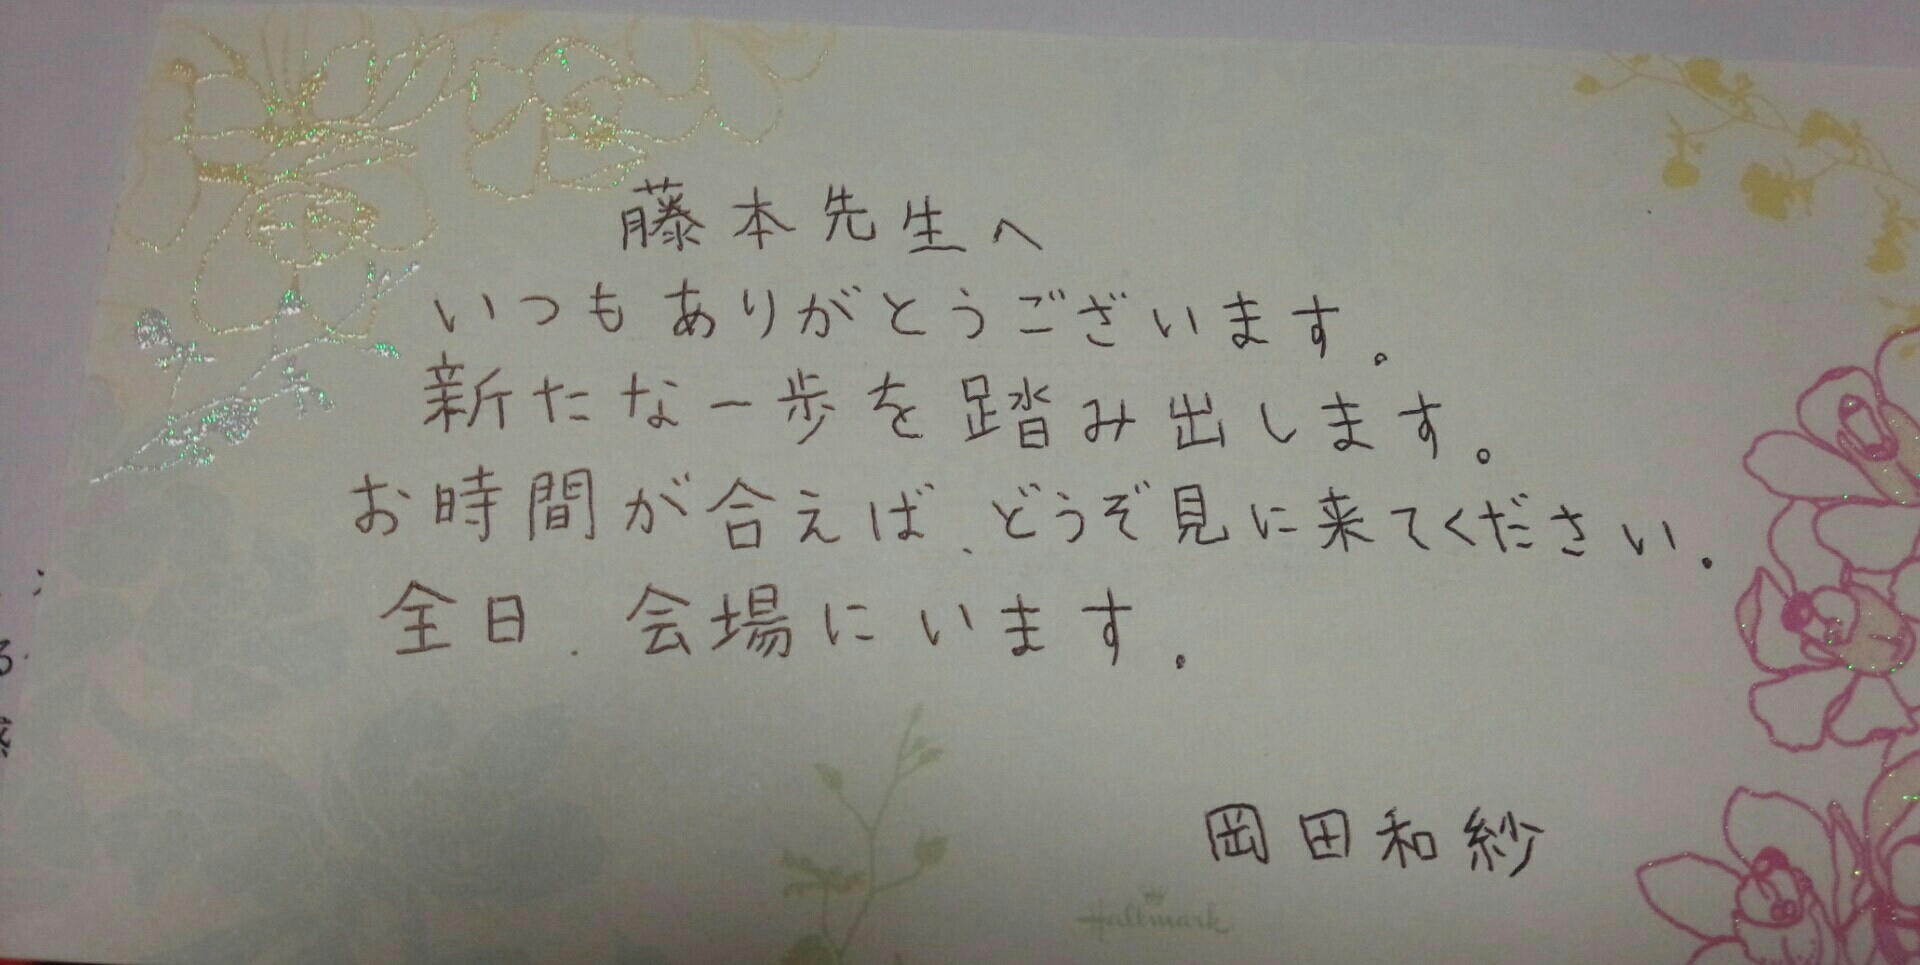 藤本先生へ
いつもありがとうございます。
新たな一歩を踏み出します。
お時間が合えば、どうぞ見に来てください。
全日、会場にいます。
岡田和紗
Hallmark